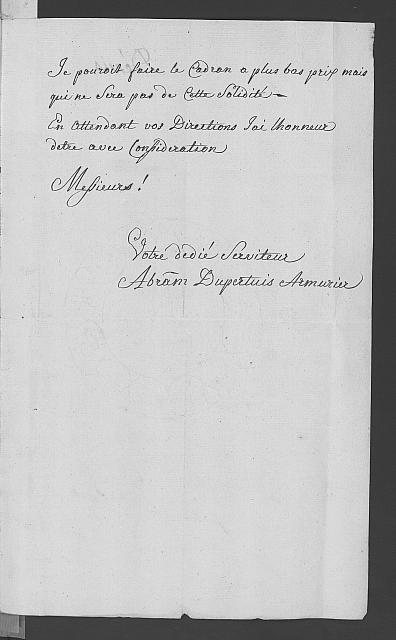 Je pouroit faire le Cadran a plus bas prix mais
qui ne Sera pas de Cette Solidité
En Attendant vos Directions J'ai lhonneur
detre avec Consideration
Messieurs !
Votre dedié Serviteur
Abram Dupertuis Armurier